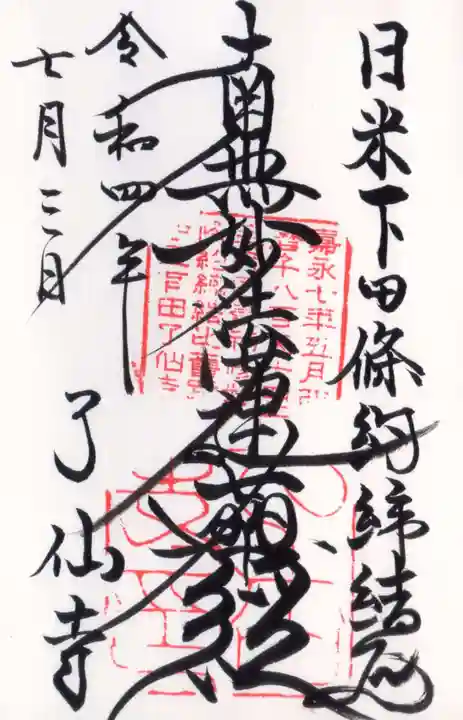 日米下田條約締結之地
南無妙法蓮華経
令和四年
七月三日
了仙寺
嘉永七年五月
了仙寺